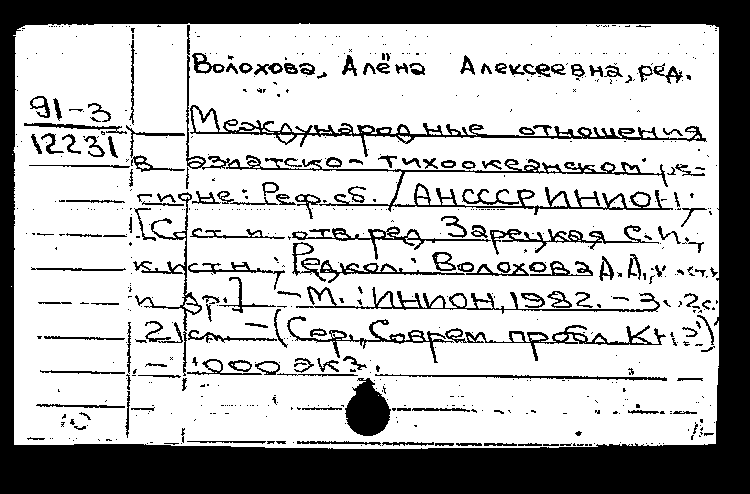 Волохова, Алёна Алексеевна, ред.
91-3
12231
Международные отношения
в азиатско-тихоокеанском ре-
гионе: Реф. сб. / АН СССР, ИНИОН;
[Сост. и отв. ред. Зарецкая С.И.,
к.ист.н.; Редкол.: Волохова А.А.,
и др.]. - М.: ИНИОН, 1982. -
21 см. - (Сер. "Соврем. пробл. КНР")
- 1000 экз.